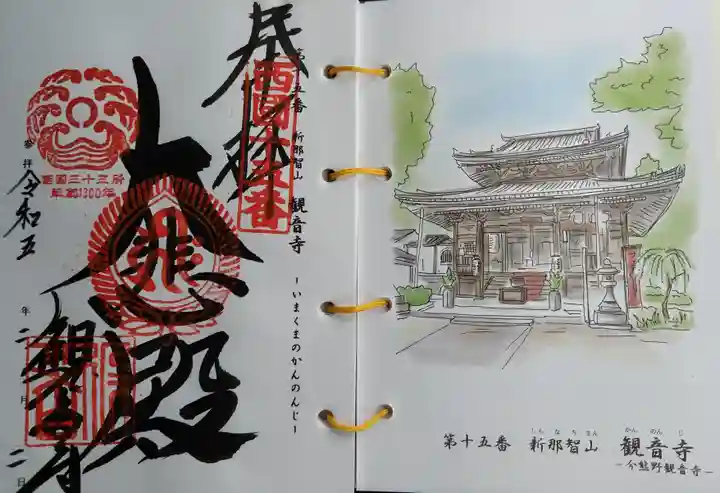 奉拝
西国十五番
第十五番 新那智山 観音寺
-いまくまのかんのんじ-
大悲殿
観音寺
西国三十三所
草創1300年
参拝 令和五年二月二日
第十五番 新那智山 観音寺
しんなちさん
かんのんじ
-今熊野観音寺-